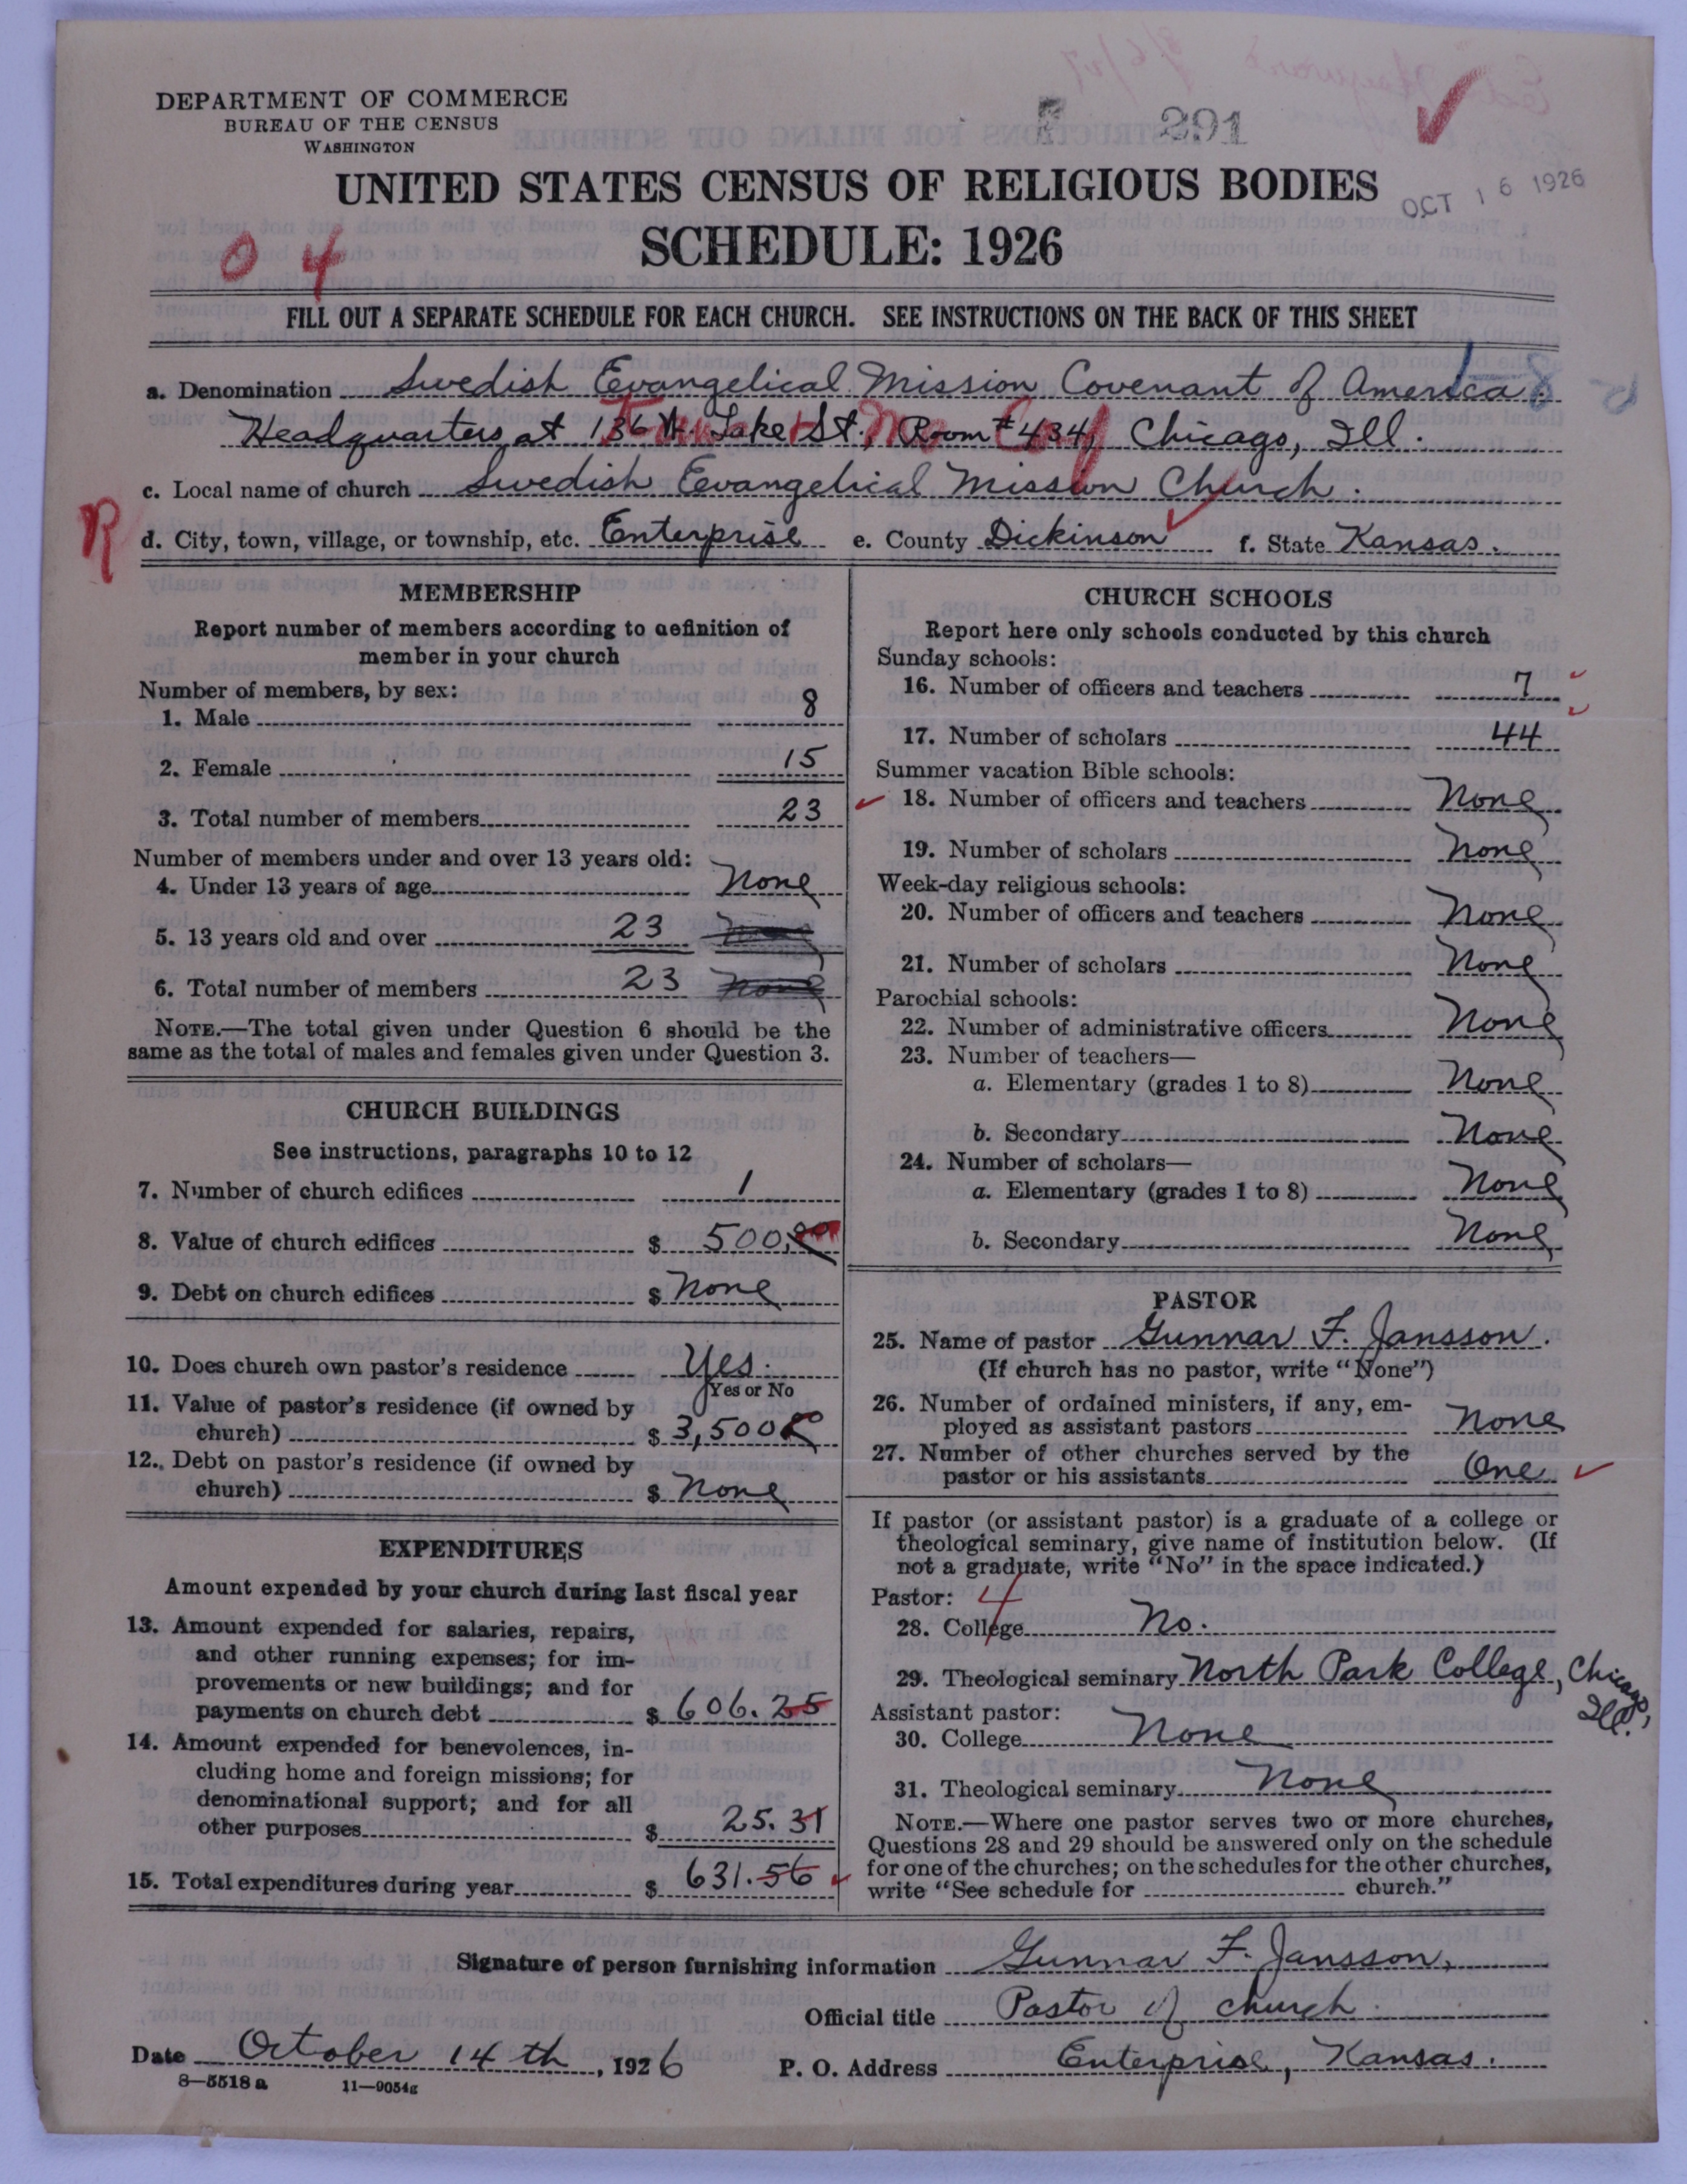 DEPARTMENT OF COMMERCE
BUREAU OF THE CENSUS
WASHINGTON
291
UNITED STATES CENSUS OF RELIGIOUS BODIES
OCT 16 1926
SCHEDULE: 1926
0 4
FILL OUT A SEPARATE SCHEDULE FOR EACH CHURCH. SEE INSTRUCTIONS ON THE BACK OF THIS SHEET
a. Denomination Swedish Evangelical Mission Covenant of America
Headquarters at 136 W. Lake St., Room #434, Chicago, Ill.
c. Local name of church Swedish Evangelical Mission Church.
R
d. City, town, village, or township, etc. Enterprise e. County Dickinson f. State Kansas.
MEMBERSHIP
Report number of members according to definition of
member in your church
Number of members, by sex:
1. Male 8
2. Female 15
3. Total number of members 23
Number of members under and over 13 years old:
4. Under 13 years of age None
5. 13 years old and over 23 None
6. Total number of members 23 None
NOTE.—The total given under Question 6 should be the
same as the total of males and females given under Question 3.
CHURCH BUILDINGS
See instructions, paragraphs 10 to 12
7. Number of church edifices 1
8. Value of church edifices $ 500.00
9. Debt on church edifices $ None
10. Does church own pastor's residence Yes.
Yes or No
11. Value of pastor's residence (if owned by
church) $ 3,500
12. Debt on pastor's residence (if owned by
church) $ None
EXPENDITURES
Amount expended by your church during last fiscal year
13. Amount expended for salaries, repairs,
and other running expenses; for im-
provements or new buildings; and for
payments on church debt $ 606.25
14. Amount expended for benevolences, in-
cluding home and foreign missions; for
denominational support; and for all
other purposes $ 25.31
15. Total expenditures during year $ 631.56
CHURCH SCHOOLS
Report here only schools conducted by this church
Sunday schools:
16. Number of officers and teachers 7
17. Number of scholars 44
Summer vacation Bible schools:
18. Number of officers and teachers None
19. Number of scholars None
Week-day religious schools:
20. Number of officers and teachers None
21. Number of scholars None
Parochial schools:
22. Number of administrative officers None
23. Number of teachers—
a. Elementary (grades 1 to 8) None
b. Secondary None
24. Number of scholars—
a. Elementary (grades 1 to 8) None
b. Secondary None
PASTOR
25. Name of pastor Gunnar F. Jansson.
(If church has no pastor, write "None")
26. Number of ordained ministers, if any, em-
ployed as assistant pastors None
27. Number of other churches served by the
pastor or his assistants One
If pastor (or assistant pastor) is a graduate of a college or
theological seminary, give name of institution below. (If
not a graduate, write "No" in the space indicated.)
Pastor: 4
28. College No.
29. Theological seminary North Park College, Chicago,
Ill.
Assistant pastor:
30. College None
31. Theological seminary None
NOTE.—Where one pastor serves two or more churches,
Questions 28 and 29 should be answered only on the schedule
for one of the churches; on the schedules for the other churches,
write "See schedule for church."
Signature of person furnishing information Gunnar F. Jansson.
Official title Pastor of church.
Date October 14th, 1926 P. O. Address Enterprise, Kansas.
8—5518 a 11—9054g